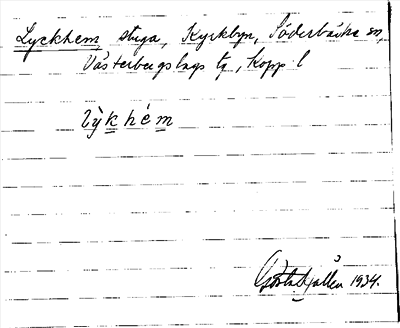 Lyckhem, stuga, Kyrkbyn, Söderbärke sn,
Västerbergslags tg., Kopp. l
lỳkhém
1934.